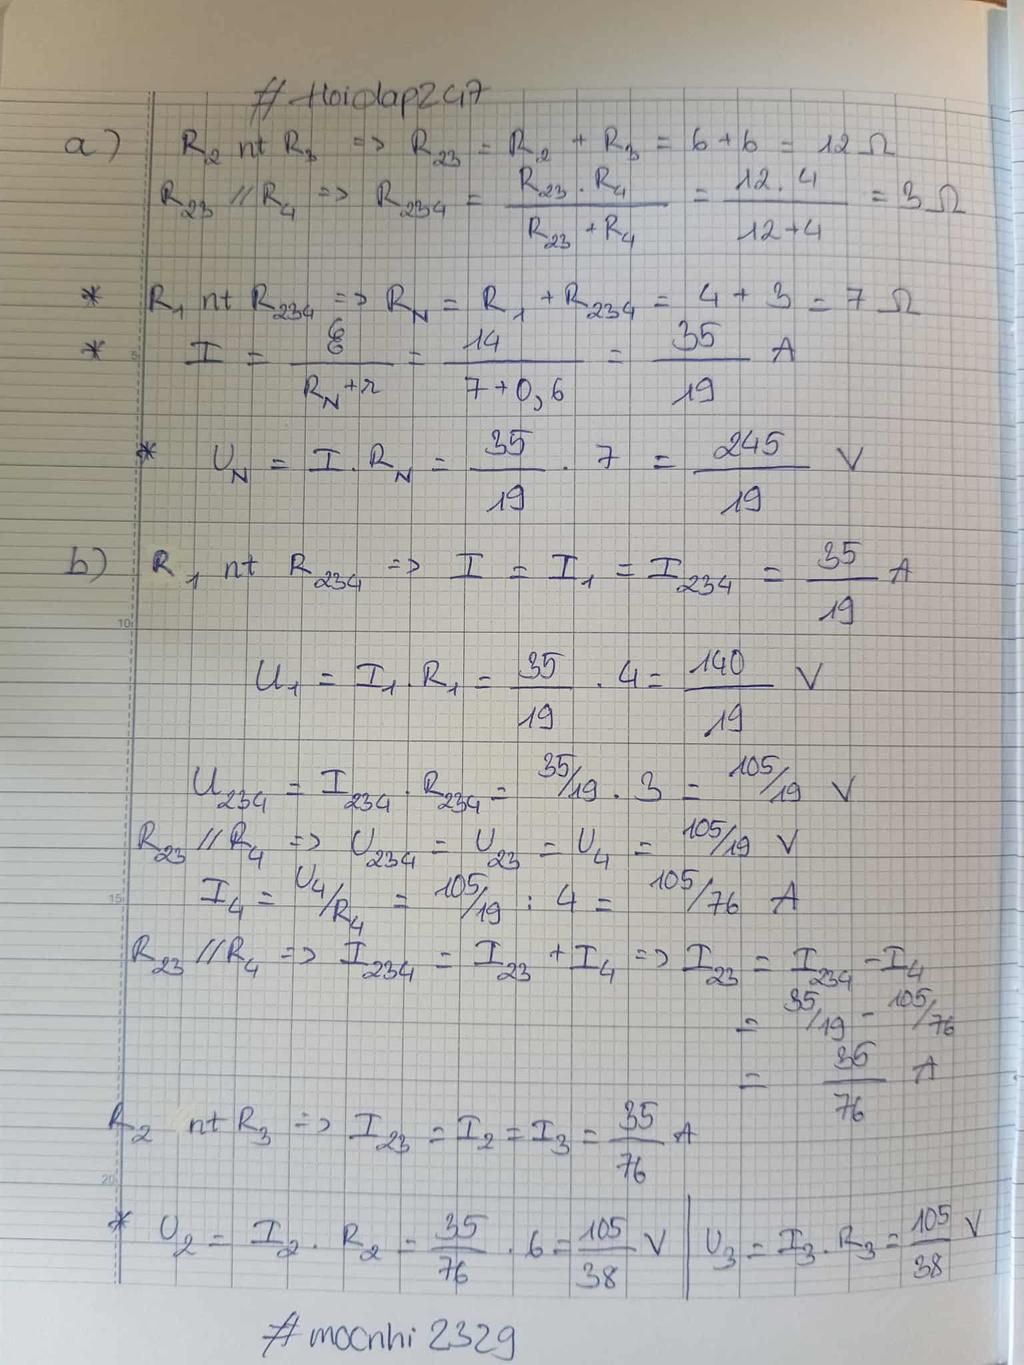 # Hoidap247
a) R₂ nt R₃ => R₂₃ = R₂ + R₃ = 6 + 6 = 12 Ω
R₂₃ // R₄ => R₂₃₄ = (R₂₃ . R₄)/(R₂₃ + R₄) = (12 . 4)/(12 + 4) = 3 Ω
* R₁ nt R₂₃₄ => R_N = R₁ + R₂₃₄ = 4 + 3 = 7 Ω
* I = ℰ/(R_N + r) = 14/(7 + 0,6) = 35/19 A
* U_N = I . R_N = 35/19 . 7 = 245/19 V
b) R₁ nt R₂₃₄ => I = I₁ = I₂₃₄ = 35/19 A
10
U₁ = I₁ . R₁ = 35/19 . 4 = 140/19 V
U₂₃₄ = I₂₃₄ . R₂₃₄ = 35/19 . 3 = 105/19 V
R₂₃ // R₄ => U₂₃₄ = U₂₃ = U₄ = 105/19 V
15 I₄ = U₄/R₄ = 105/19 : 4 = 105/76 A
R₂₃ // R₄ => I₂₃₄ = I₂₃ + I₄ => I₂₃ = I₂₃₄ - I₄
= 35/19 - 105/76
= 35/76 A
R₂ nt R₃ => I₂₃ = I₂ = I₃ = 35/76 A
20
* U₂ = I₂ . R₂ = 35/76 . 6 = 105/38 V | U₃ = I₃ . R₃ = 105/38 V
# mocnhi2329